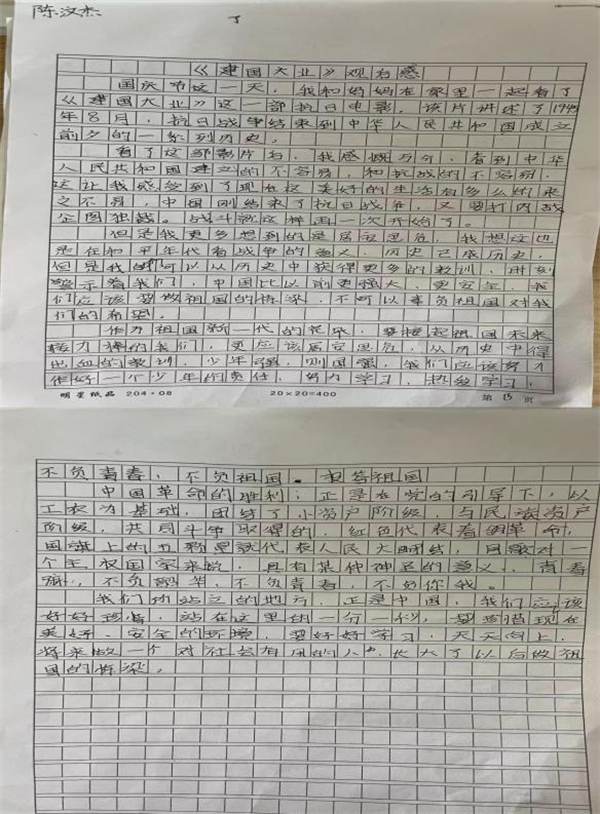 陈汶杰
了
《建国大业》观后感
国庆节这一天，我和妈妈在家里一起看了
《建国大业》这一部抗日电影。该片讲述了1945
年8月，抗日战争结束到中华人民共和国成立
前夕的一系列历史。
看了这部影片后，我感慨万分，看到中华
人民共和国建立的不容易，和抗战的不容易，
这让我感受到了现在这美好的生活有多么的来
之不易，中国刚结束了抗日战争，又要打内战
企图独裁。战斗就这样再一次开始了。
但是我更多想到的是居安思危，我想这也
是在和平年代看战争的意义，历史已成历史，
但是我们可以从历史中获得更多的教训，时刻
警示着我们，中国比以前更强大，更安全，我
们应该要做祖国的栋梁，不可以辜负祖国对我
们的希望。
作为祖国新一代的花朵，要接起祖国未来
接力棒的我们，更应该居安思危，从历史中得
出血的教训，少年强，则国强，我们应该努力
作好一个少年的责任，努力学习，热爱学习，
明星纸品 204·08 20×20=400 第 13 页
不负青春，不负祖国。报答祖国
中国革命的胜利；正是在党的引导下，以
工农为基础，团结了小资产阶级，与民族资产
阶级，共同斗争取得的，红色代表着革命，
国旗上的五颗星就代表人民大团结，国歌对一
个主权国家来说，具有某种神圣的意义，青春
不负韶华，不负青春，不负你我。
我们所站立的地方，正是中国，我们应该
好好珍惜，站在这里的一分一秒，要珍惜现在
美好、安全的环境，要好好学习，天天向上，
将来做一个对社会有用的人，长大了以后做祖
国的栋梁。